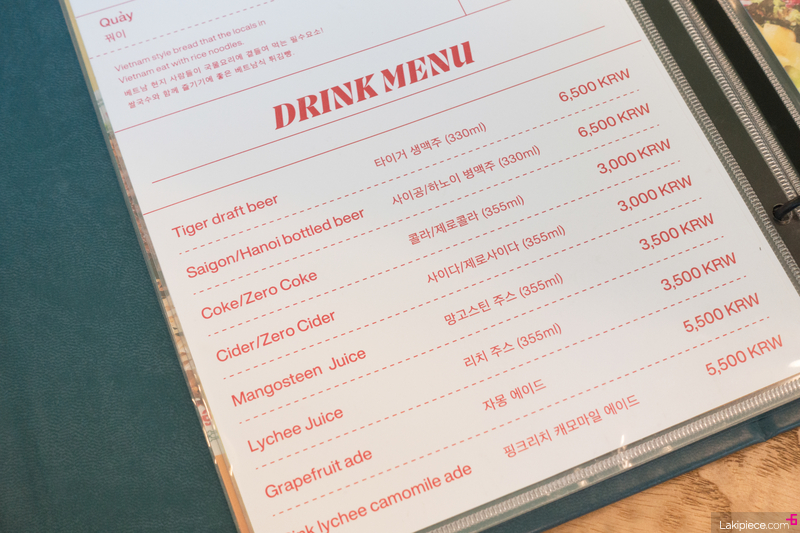 Quảy
꿔이
Vietnam style bread that the locals in
Vietnam eat with rice noodles.
베트남 현지 사람들이 국물요리에 곁들여 먹는 필수요소!
쌀국수와 함께 즐기기에 좋은 베트남식 튀김빵.
DRINK MENU
Tiger draft beer 타이거 생맥주 (330ml) 6,500 KRW
Saigon/Hanoi bottled beer 사이공/하노이 병맥주 (330ml) 6,500 KRW
Coke/Zero Coke 콜라/제로콜라 (355ml) 3,000 KRW
Cider/Zero Cider 사이다/제로사이다 (355ml) 3,000 KRW
Mangosteen Juice 망고스틴 주스 (355ml) 3,500 KRW
Lychee Juice 리치 주스 (355ml) 3,500 KRW
Grapefruit ade 자몽 에이드 5,500 KRW
lychee camomile ade 핑크리치 캐모마일 에이드 5,500 KRW
Lakipiece.com